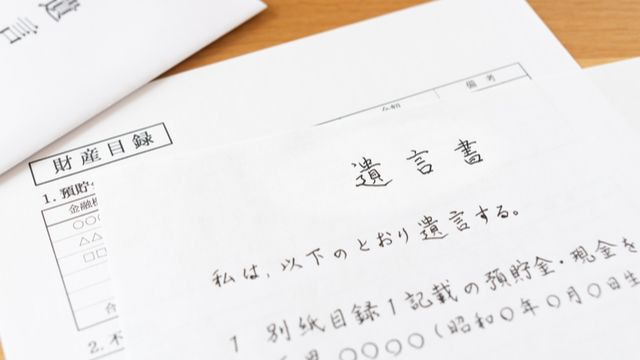 遺言
備考
金額
財産目録
1. 預貯
金融機
〇〇
△△
□□
合
2. 不
遺言書
私は、以下のとおり遺言する。
1 別紙目録1記載の預貯金・現金を
〇〇〇〇(昭和〇年〇月〇日生